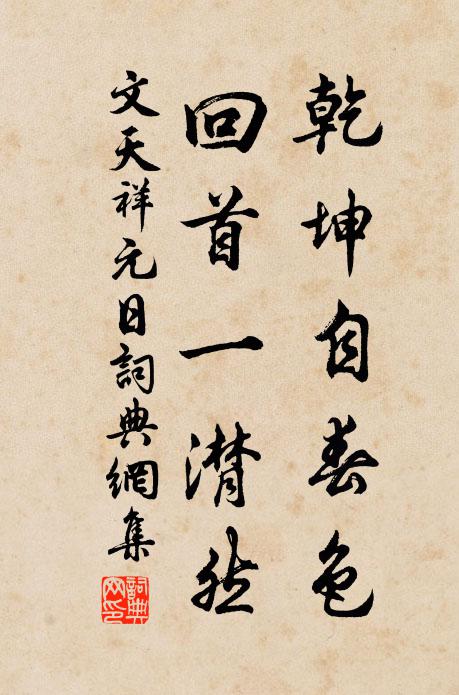 乾坤自春色
回首一潸然
文天祥元日詞典網集
詞典網印